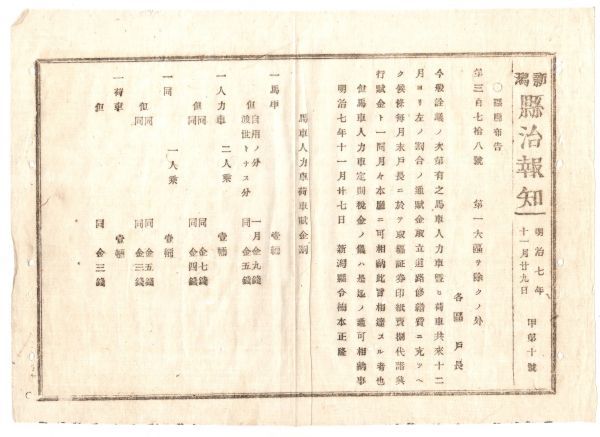 新潟縣治報知
明治七年
十一月廿九日
甲第十號
〇區戸布告
第三百七拾八號　第一大區ヲ除クノ外
各區戸長
今般詮議ノ次第有之馬車人力車暨ヒ荷車共來十二
月ヨリ左ノ割合ノ通賦金取立道路修繕費ニ充ツヘ
ク候條毎月末戸長ニ於テ取纒証券印紙賣捌代諸興
行賦金ト一同月々本廳ニ可相納此旨相達スル者也
但馬車人力車定則税金ノ儀ハ是迄ノ通可相納事
明治七年十一月廿七日　新潟縣令楠本正隆
馬車人力車荷車賦金額
一馬車　壹輛
但自用ノ分　一月金九錢
渡世トナス分　同金五錢
一人力車　二人乗　壹輛
但同　同金七錢
同　同金四錢
一同　一人乗　壹輛
但同　同金五錢
同　同金三錢
一荷車　壹輛
但　同金三錢